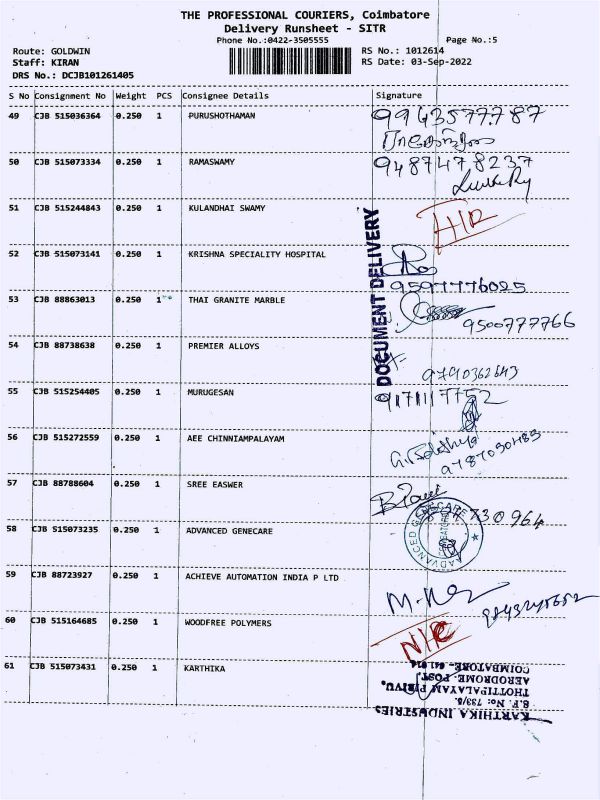 THE PROFESSIONAL COURIERS, Coimbatore
Delivery Runsheet - SITR
Phone No.:0422-3505555
Page No.:5
Route: GOLDWIN
RS No.: 1012614
Staff: KIRAN
RS Date: 03-Sep-2022
DRS No.: DCJB101261405
S No Consignment No Weight PCS Consignee Details Signature
49 CJB 515036364 0.250 1 PURUSHOTHAMAN 9943577787
50 CJB 515073334 0.250 1 RAMASWAMY 9487478237
51 CJB 515244843 0.250 1 KULANDHAI SWAMY
52 CJB 515073141 0.250 1 KRISHNA SPECIALITY HOSPITAL
9597776025
53 CJB 88863013 0.250 1 THAI GRANITE MARBLE
9500777766
54 CJB 88738638 0.250 1 PREMIER ALLOYS
9790362643
55 CJB 515254405 0.250 1 MURUGESAN 9171117752
56 CJB 515272559 0.250 1 AEE CHINNIAMPALAYAM
57 CJB 88788604 0.250 1 SREE EASWER
58 CJB 515073235 0.250 1 ADVANCED GENECARE
59 CJB 88723927 0.250 1 ACHIEVE AUTOMATION INDIA P LTD
60 CJB 515164685 0.250 1 WOODFREE POLYMERS
61 CJB 515073431 0.250 1 KARTHIKA
DOCUMENT DELIVERY
ADVANCED GENECARE
KARTHIKA INDUSTRIES
S.F. No: 733/5,
THOTTIPALAYAM PIRIVU,
AERODROME POST,
COIMBATORE - 641 014